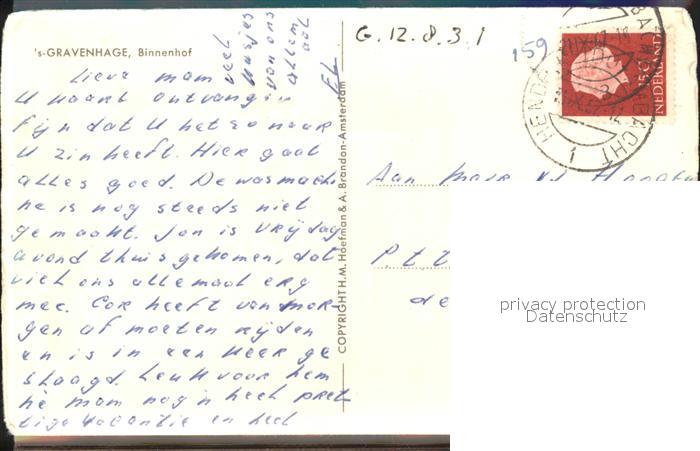 's-GRAVENHAGE, Binnenhof
Lieve mam
U kaart ontvangen
fijn dat U het zo naar
U zin heeft. Hier gaat
alles goed. De wasmachi
ne is nog steeds niet
gemaakt. Jan is vrijdag
avond thuis gekomen, dat
viel ons allemaal erg
mee. Cor heeft vanmor-
gen af moeten rijden
en is in een keer ge
slaagd. Leuk voor hem
hè mam nog 'n heel pret
tige vacantie en heel
veel
kusjes
van ons
allem
aal
COPYRIGHT H.M. Hoefman & A. Brandon-Amsterdam
G. 12.8.3.1
159
15 C
NEDERLAND
Aan Mevr. v.d.
de
privacy protection
Datenschutz